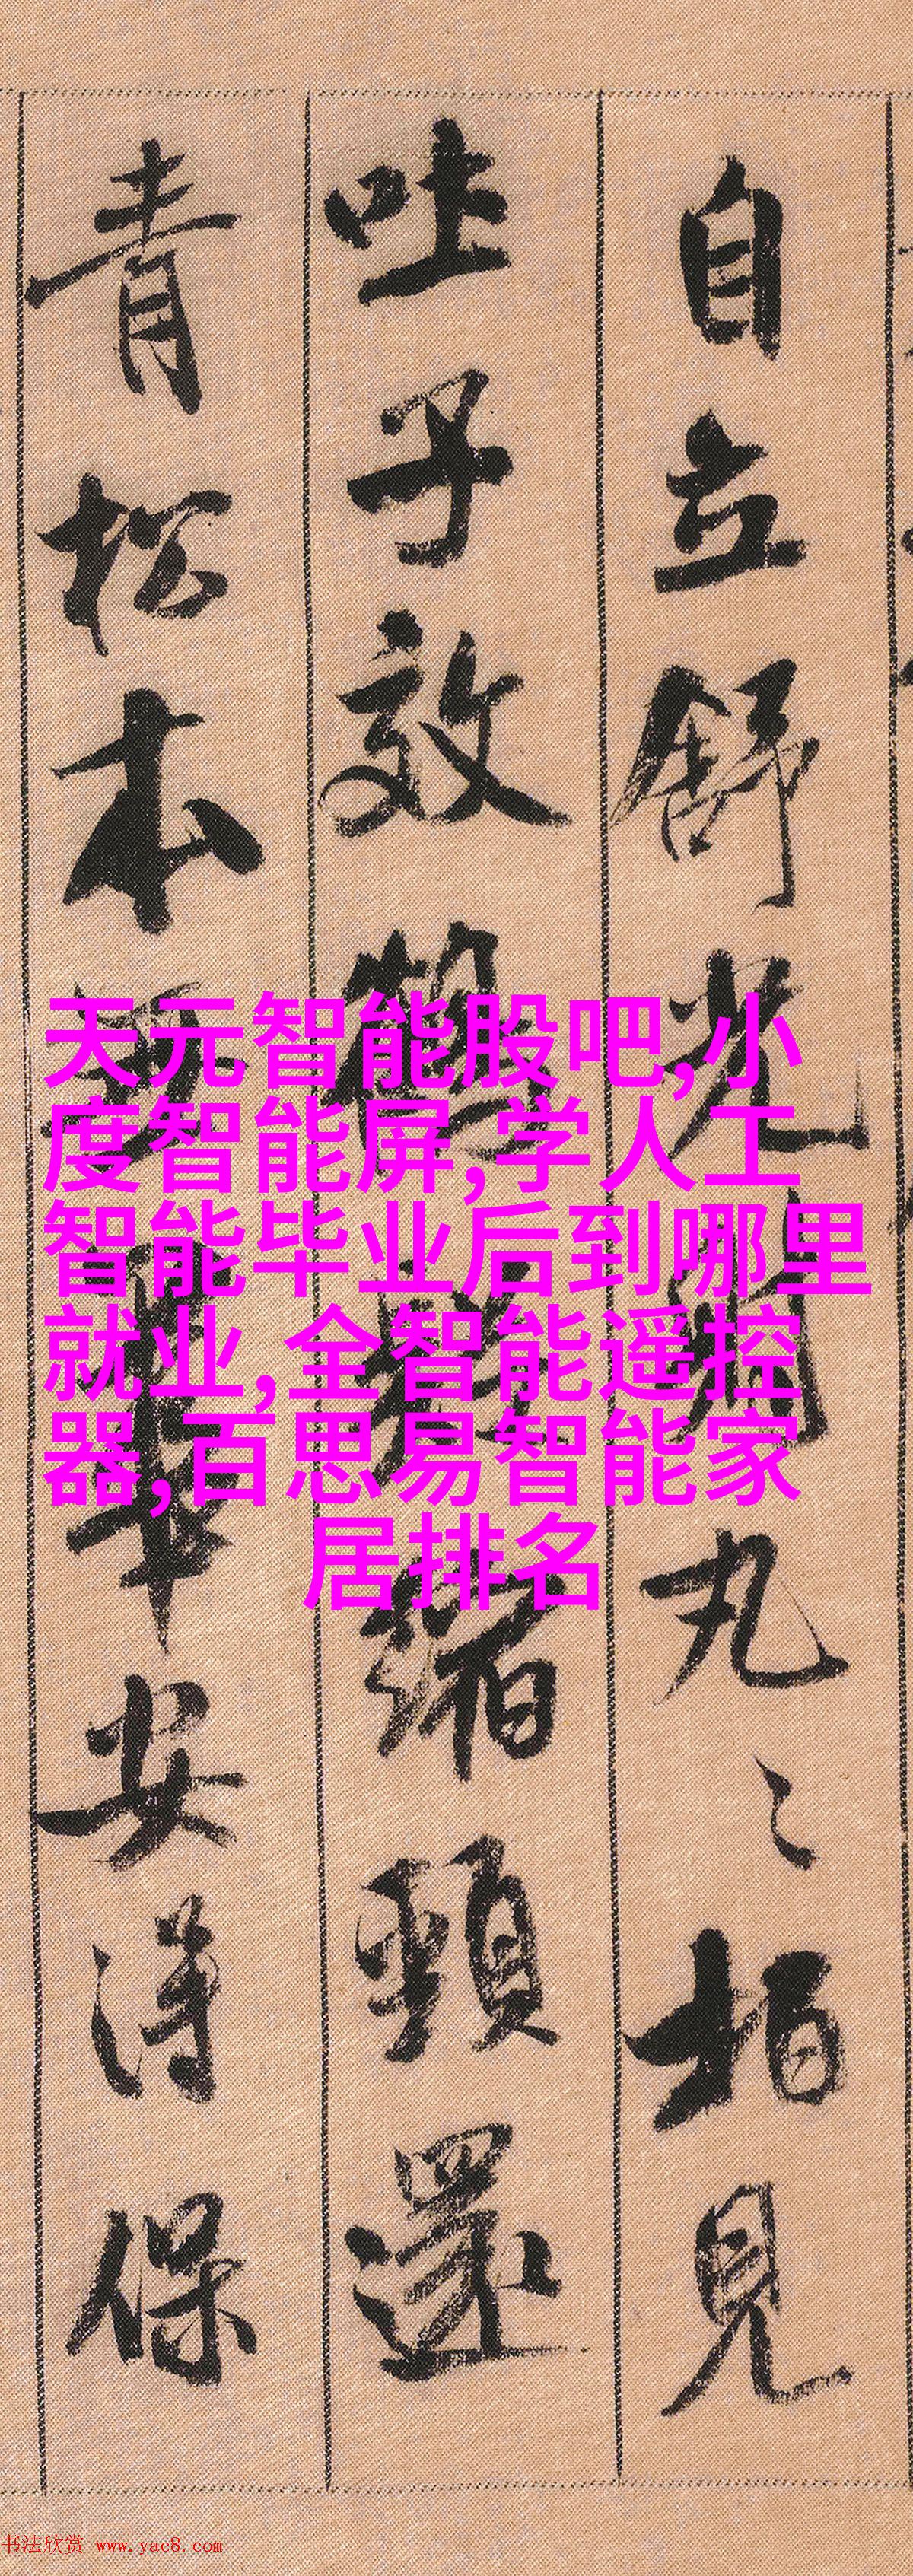 自立舒光丸〻柏見
吐子效縮頸還
青松本安得保
天元智能股吧,小
度智能屏,学人工
智能毕业后到哪里
就业,全智能遥控
器,百思易智能家
居排名
书法欣赏 www.yac8.com